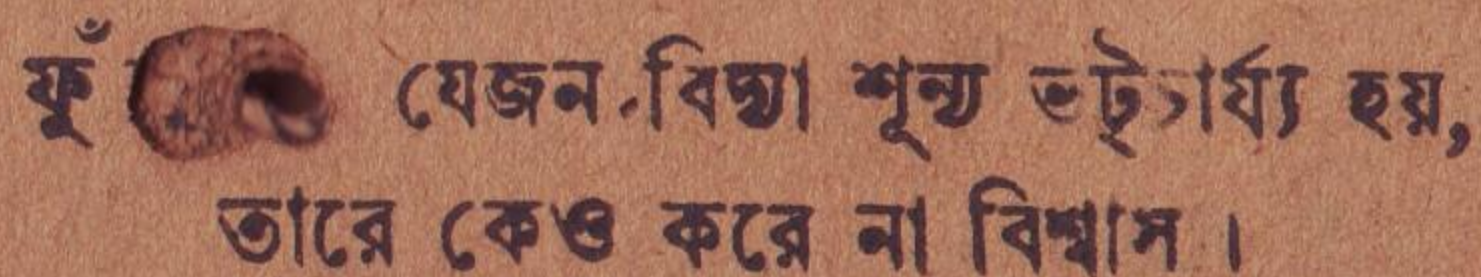 যেজন বিদ্যা শূন্য ভট্চার্য্য হয়,
তারে কেও করে না বিশ্বাস ।